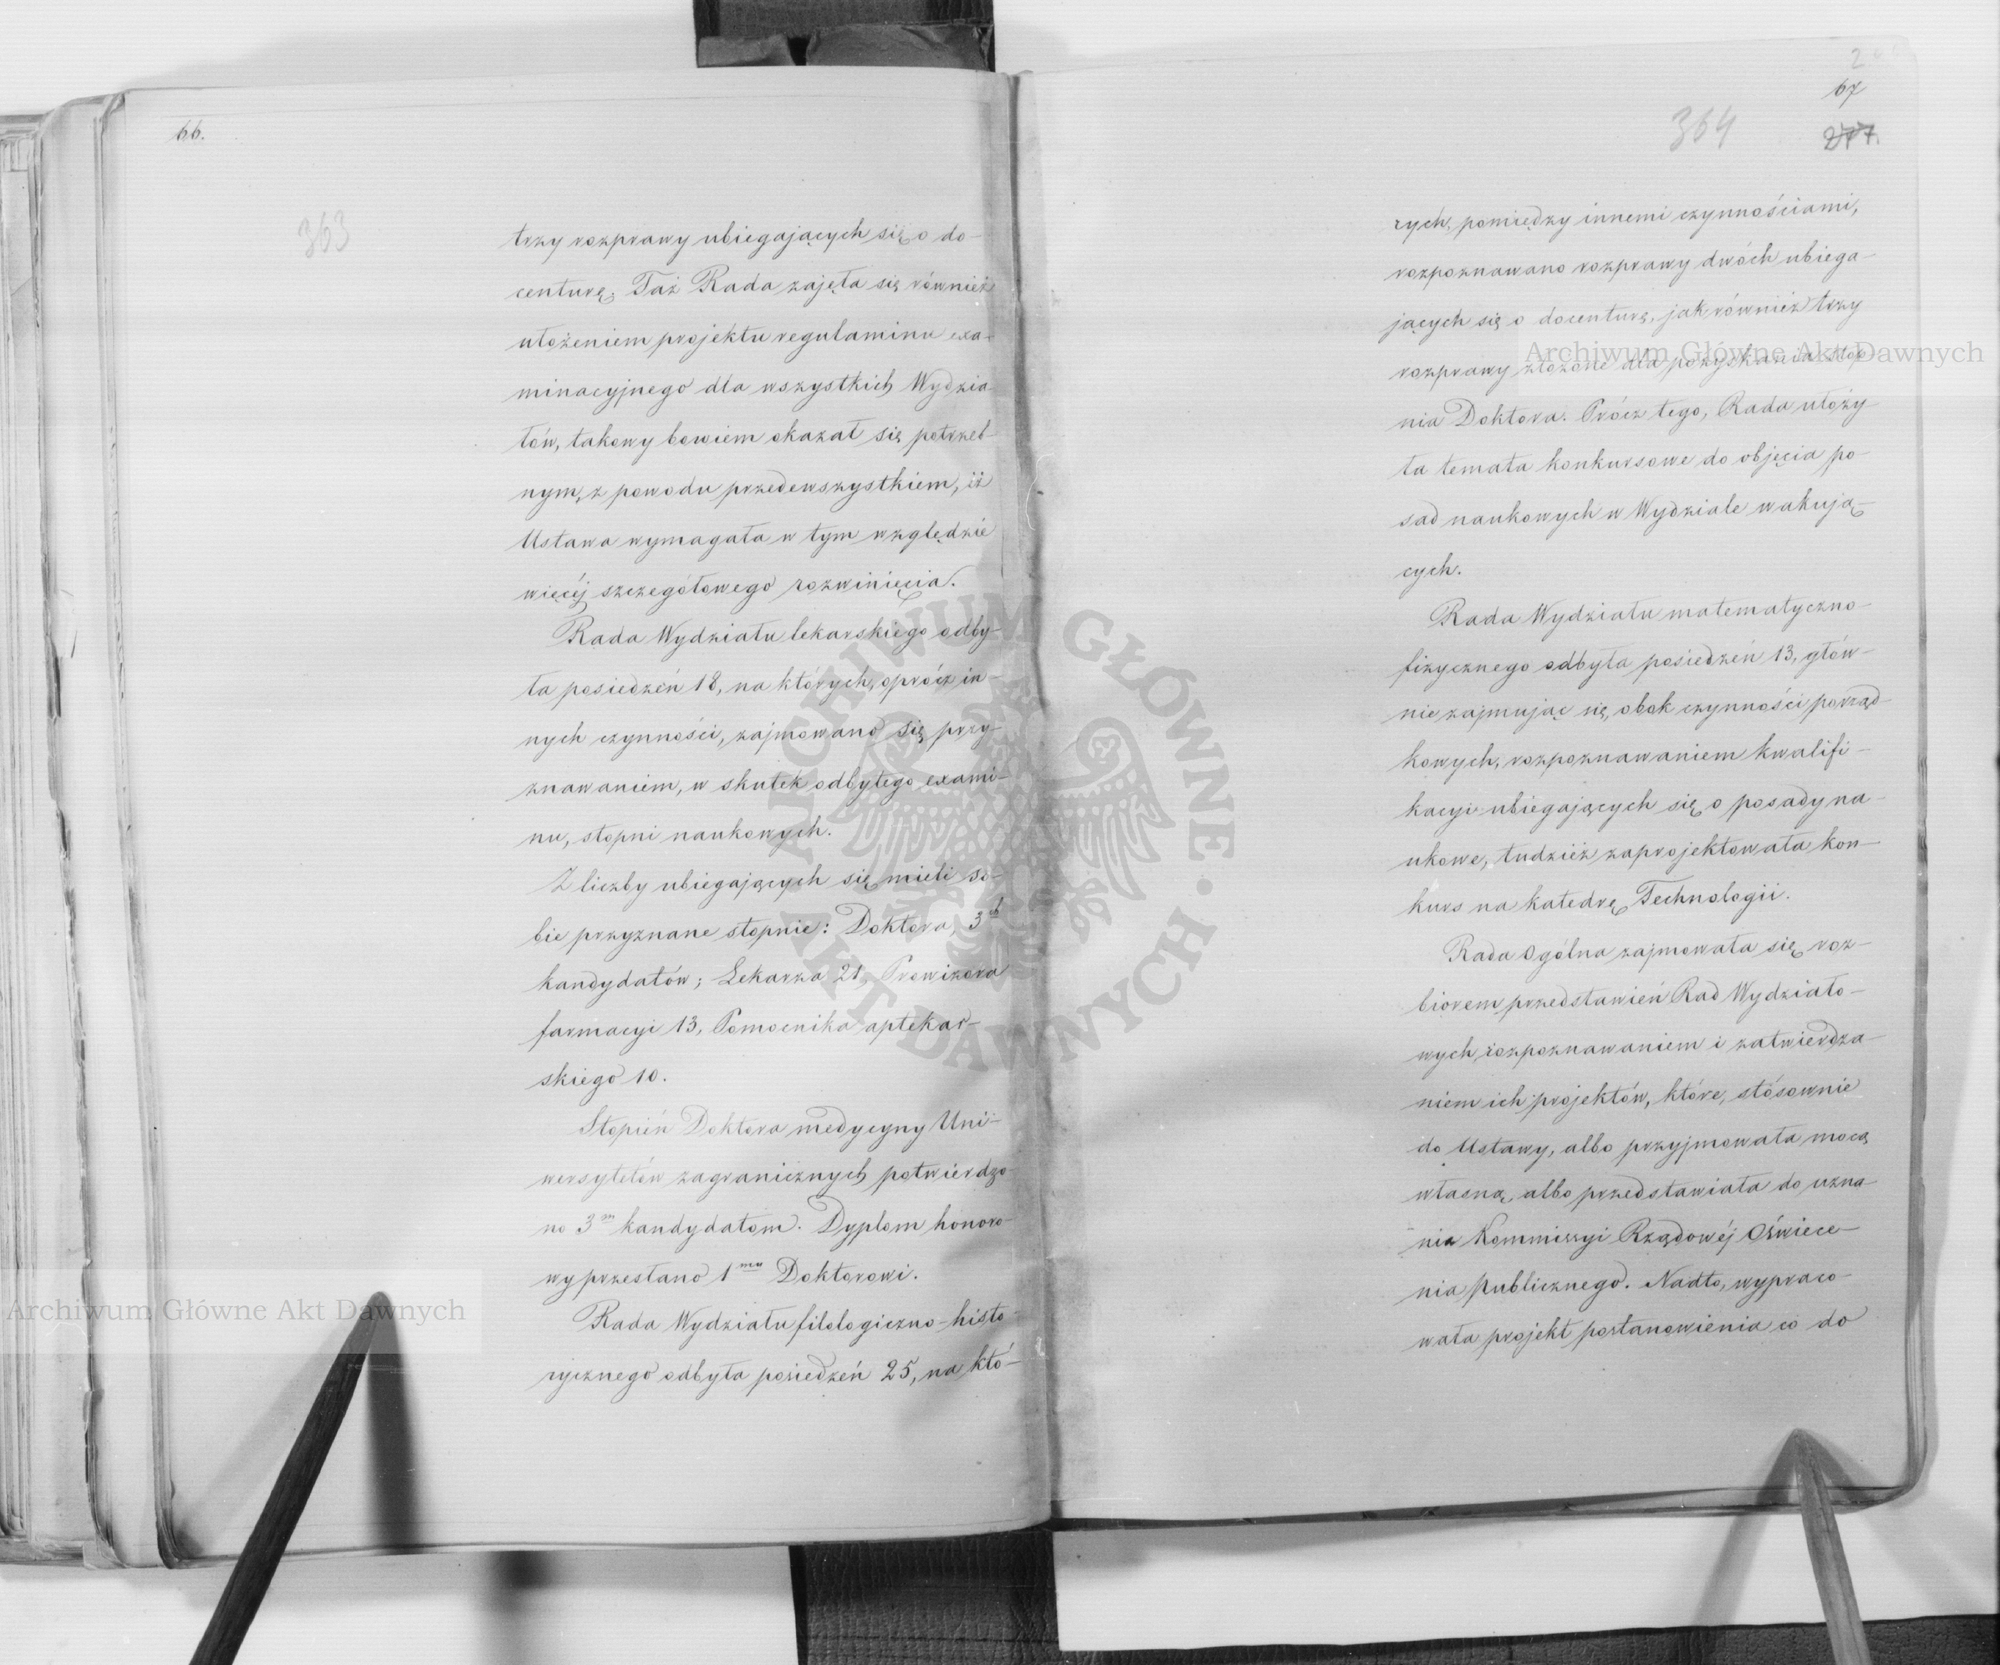 66.
363
trzy rozprawy ubiegających się o do-
centurę. Taż Rada zajęła się również
ułożeniem projektu regulaminu exa-
minacyjnego dla wszystkich Wydzia-
łów, takowy bowiem okazał się potrzeb-
nym, z powodu przedewszystkiem, iż
Ustawa wymagała w tym względzie
więcéj szczegółowego rozwinięcia.
Rada Wydziału lekarskiego odby-
ła posiedzeń 18, na których, oprócz in-
nych czynności, zajmowano się przy-
znawaniem, w skutek odbytego exami-
nu, stopni naukowych.
Z liczby ubiegających się mieli so-
bie przyznane stopnie: Doktora, 3ch
kandydatów; Lekarza 21, Prowizora
farmacyi 13, Pomocnika aptekar-
skiego 10.
Stopień Doktora medycyny Uni-
wersytetów zagranicznych potwierdzo-
no 3m kandydatom. Dyplom honoro-
wy przesłano 1mu Doktorowi.
Rada Wydziału filologiczno-histo-
rycznego odbyła posiedzeń 25, na któ-
67
364
277.
rych, pomiędzy innemi czynnościami,
rozpoznawano rozprawy dwóch ubiega-
jących się o docenturę, jak również trzy
rozprawy złożone dla pozyskania stop
nia Doktora. Prócz tego, Rada ułoży-
ła temata konkursowe do objęcia po-
sad naukowych w Wydziale wakują-
cych.
Rada Wydziału matematyczno-
fizycznego odbyła posiedzeń 13, głów-
nie zajmując się, obok czynności porząd-
kowych, rozpoznawaniem kwalifi-
kacyi ubiegających się o posady na-
ukowe, tudzież zaprojektowała kon-
kurs na katedrę Technologii.
Rada Ogólna zajmowała się roz-
biorem przedstawień Rad Wydziało-
wych, rozpoznawaniem i zatwierdza-
niem ich projektów, które, stósownie
do Ustawy, albo przyjmowała mocą
własną, albo przedstawiała do uzna-
nia Kommissyi Rządowéj Oświece-
nia Publicznego. Nadto, wypraco-
wała projekt postanowienia co do
Archiwum Główne Akt Dawnych
Archiwum Główne Akt Dawnych
ARCHIWUM GŁÓWNE • AKT DAWNYCH •